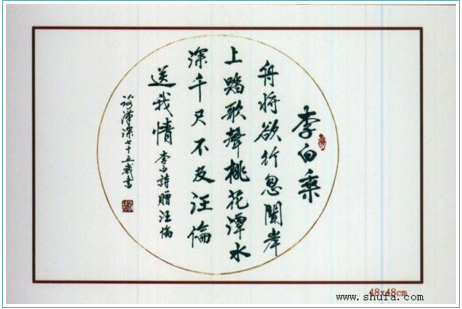 李白乘
舟将欲行忽闻岸
上踏歌声桃花潭水
深千尺不及汪伦
送我情 李白诗赠汪伦
七十五岁书
48x48cm
www.shufa.com